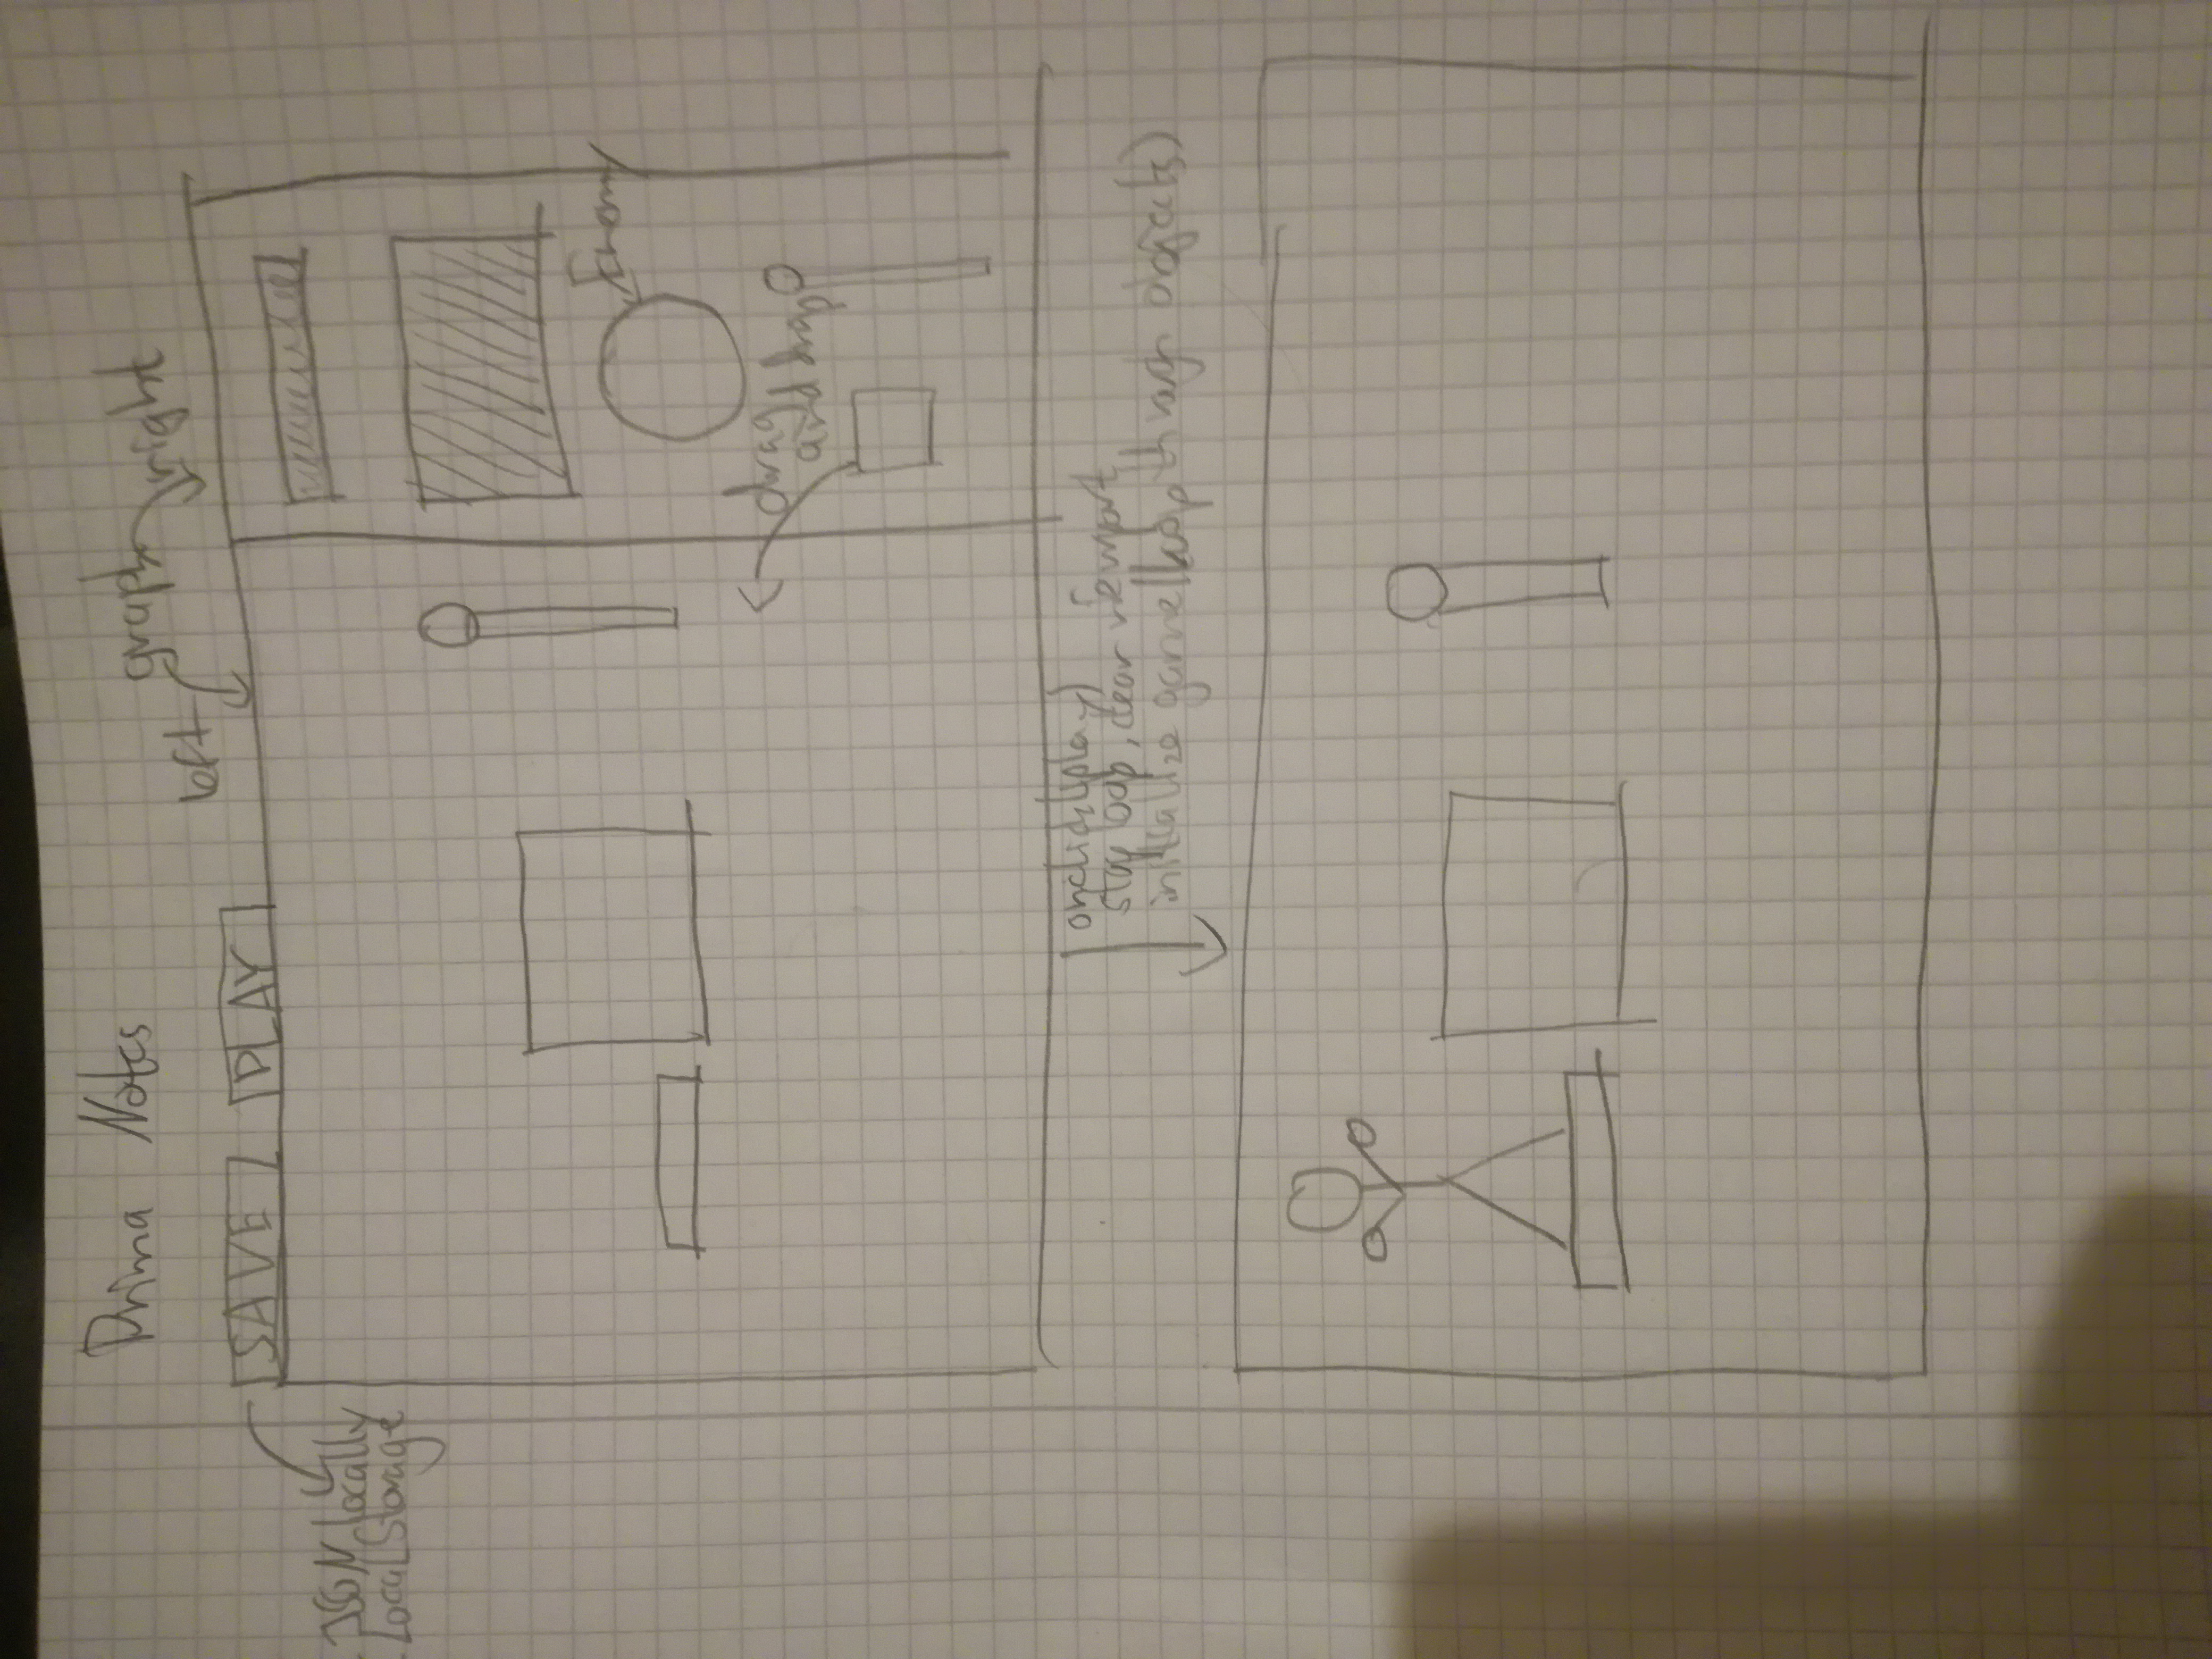 Prima Notes
graph
left
right
SAVE
PLAY
- JSON locally
- LocalStorage
Enemy
drag
and drop
onclick(play)
stop loop, clear viewport
initialize game(loop through objects)